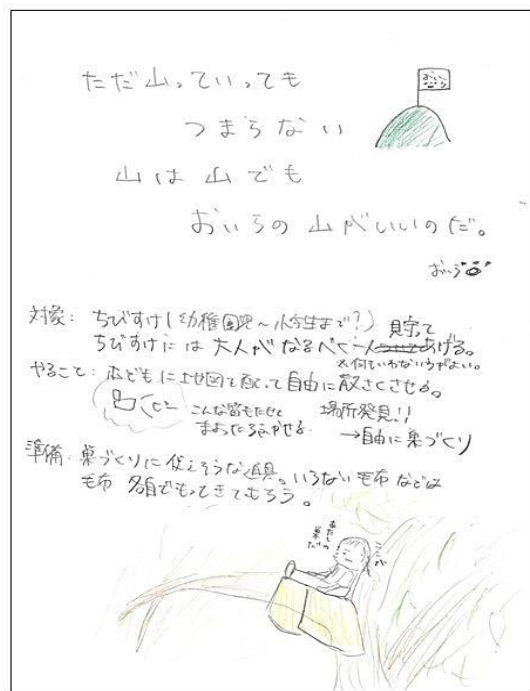 ただ山っていっても
つまらない
山は山でも
おいらの山がいいのだ。
おいら
おいら
対象: ちびすけ(幼稚園児~小学生まで?)
ちびすけには大人がなるべく一人見守ってあげる。
※何もいわないほうがよい。
やること: 子どもに地図を配って自由に散さくさせる。
こんな笛もたせて
まよったらふかせる
場所発見!!
→自由に巣づくり
準備: 巣づくりに使えそうな道具。いらない毛布などは
各自でもってきてもらう。
ここが
あたしの
巣だ